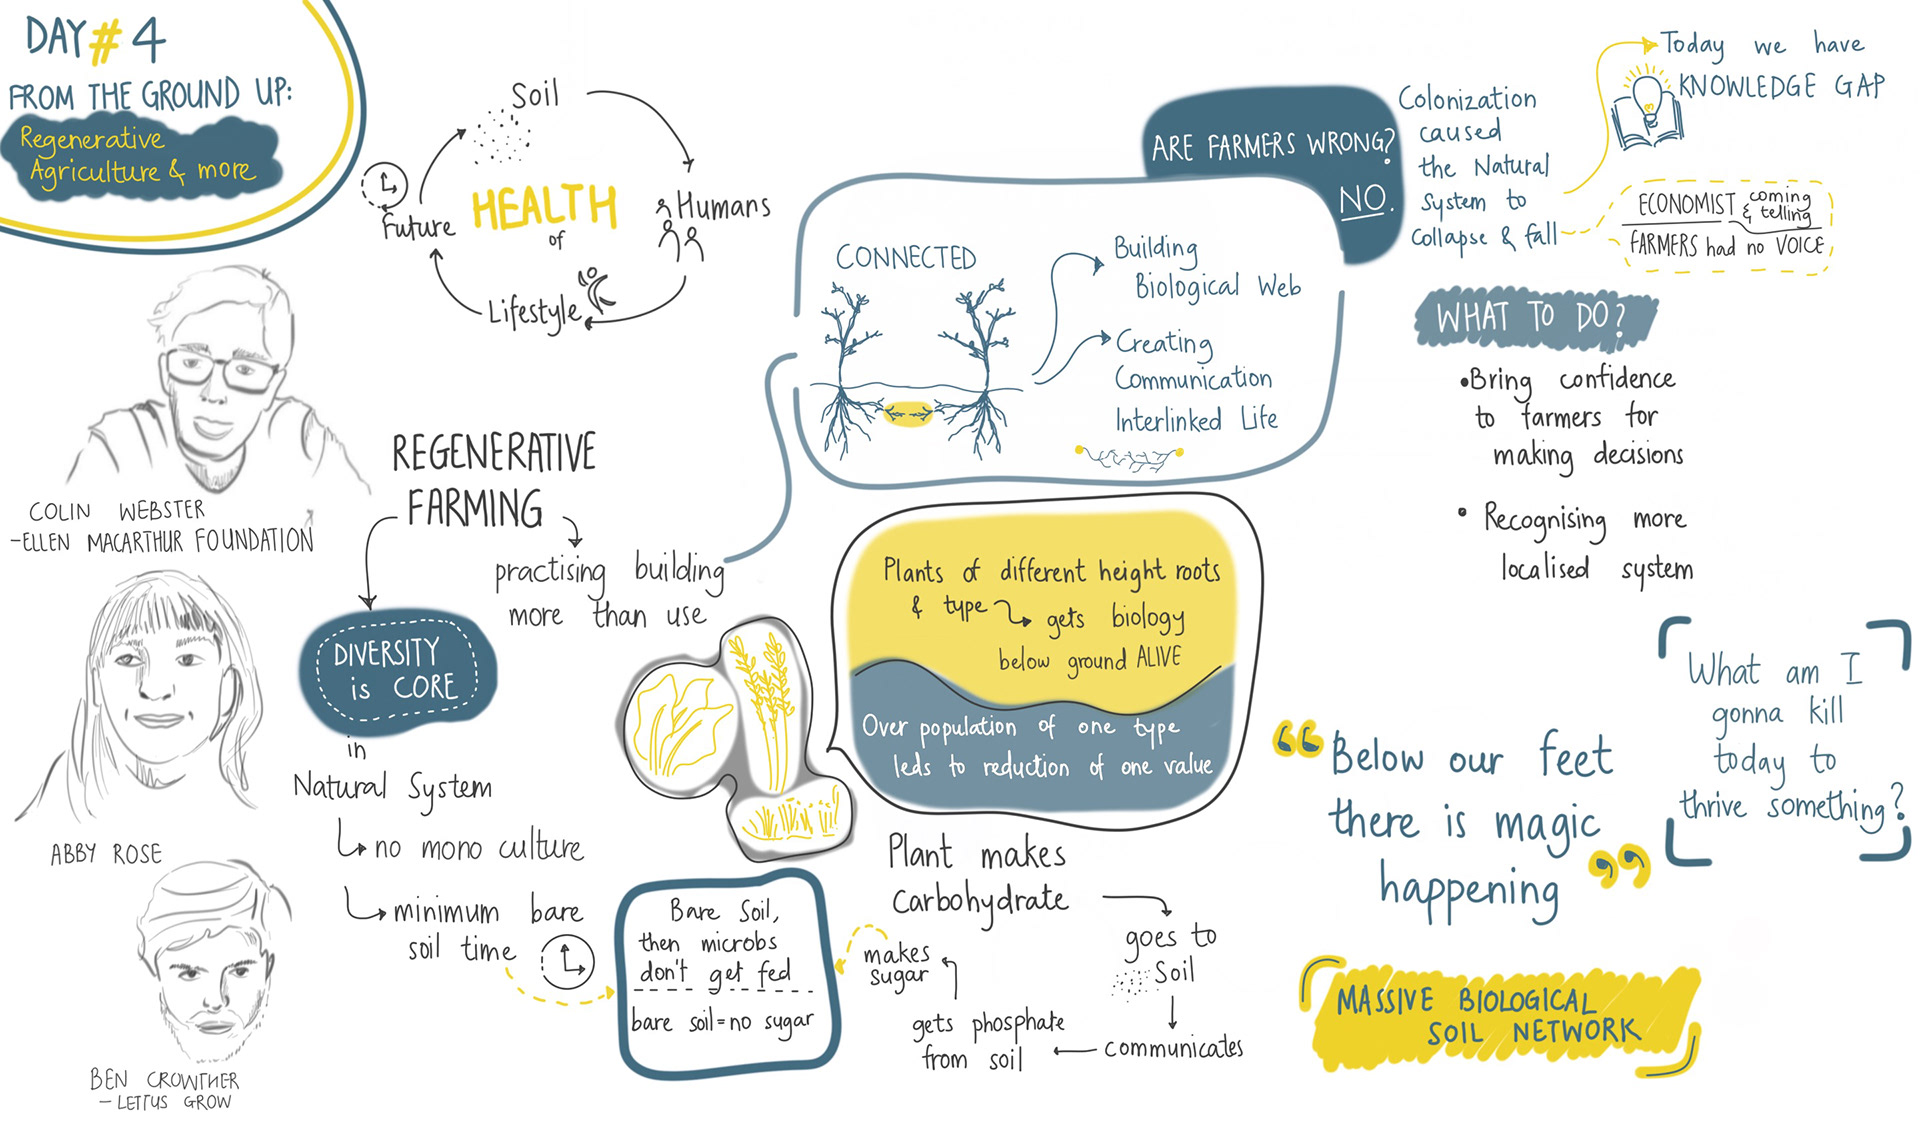 DAY # 4
FROM THE GROUND UP:
Regenerative
Agriculture & more
Soil
HEALTH
of
Humans
Lifestyle
Future
COLIN WEBSTER
-ELLEN MACARTHUR FOUNDATION
ABBY ROSE
BEN CROWTHER
- LETTUS GROW
REGENERATIVE
FARMING
practising building
more than use
DIVERSITY
is CORE
in
Natural System
no mono culture
minimum bare
soil time
Bare Soil,
then microbs
don't get fed
bare soil = no sugar
CONNECTED
Building
Biological Web
Creating
Communication
Interlinked Life
Plants of different height roots
& type
gets biology
below ground ALIVE
Over population of one type
leds to reduction of one value
Plant makes
Carbohydrate
goes to
Soil
communicates
gets phosphate
from soil
makes
sugar
ARE FARMERS WRONG?
NO.
Colonization
caused
the Natural
System to
Collapse & fall
Today we have
KNOWLEDGE GAP
ECONOMIST coming
& telling
FARMERS had no VOICE
WHAT TO DO?
• Bring confidence
to farmers for
making decisions
• Recognising more
localised system
What am I
gonna kill
today to
thrive something?
“Below our feet
there is magic
happening”
MASSIVE BIOLOGICAL
SOIL NETWORK